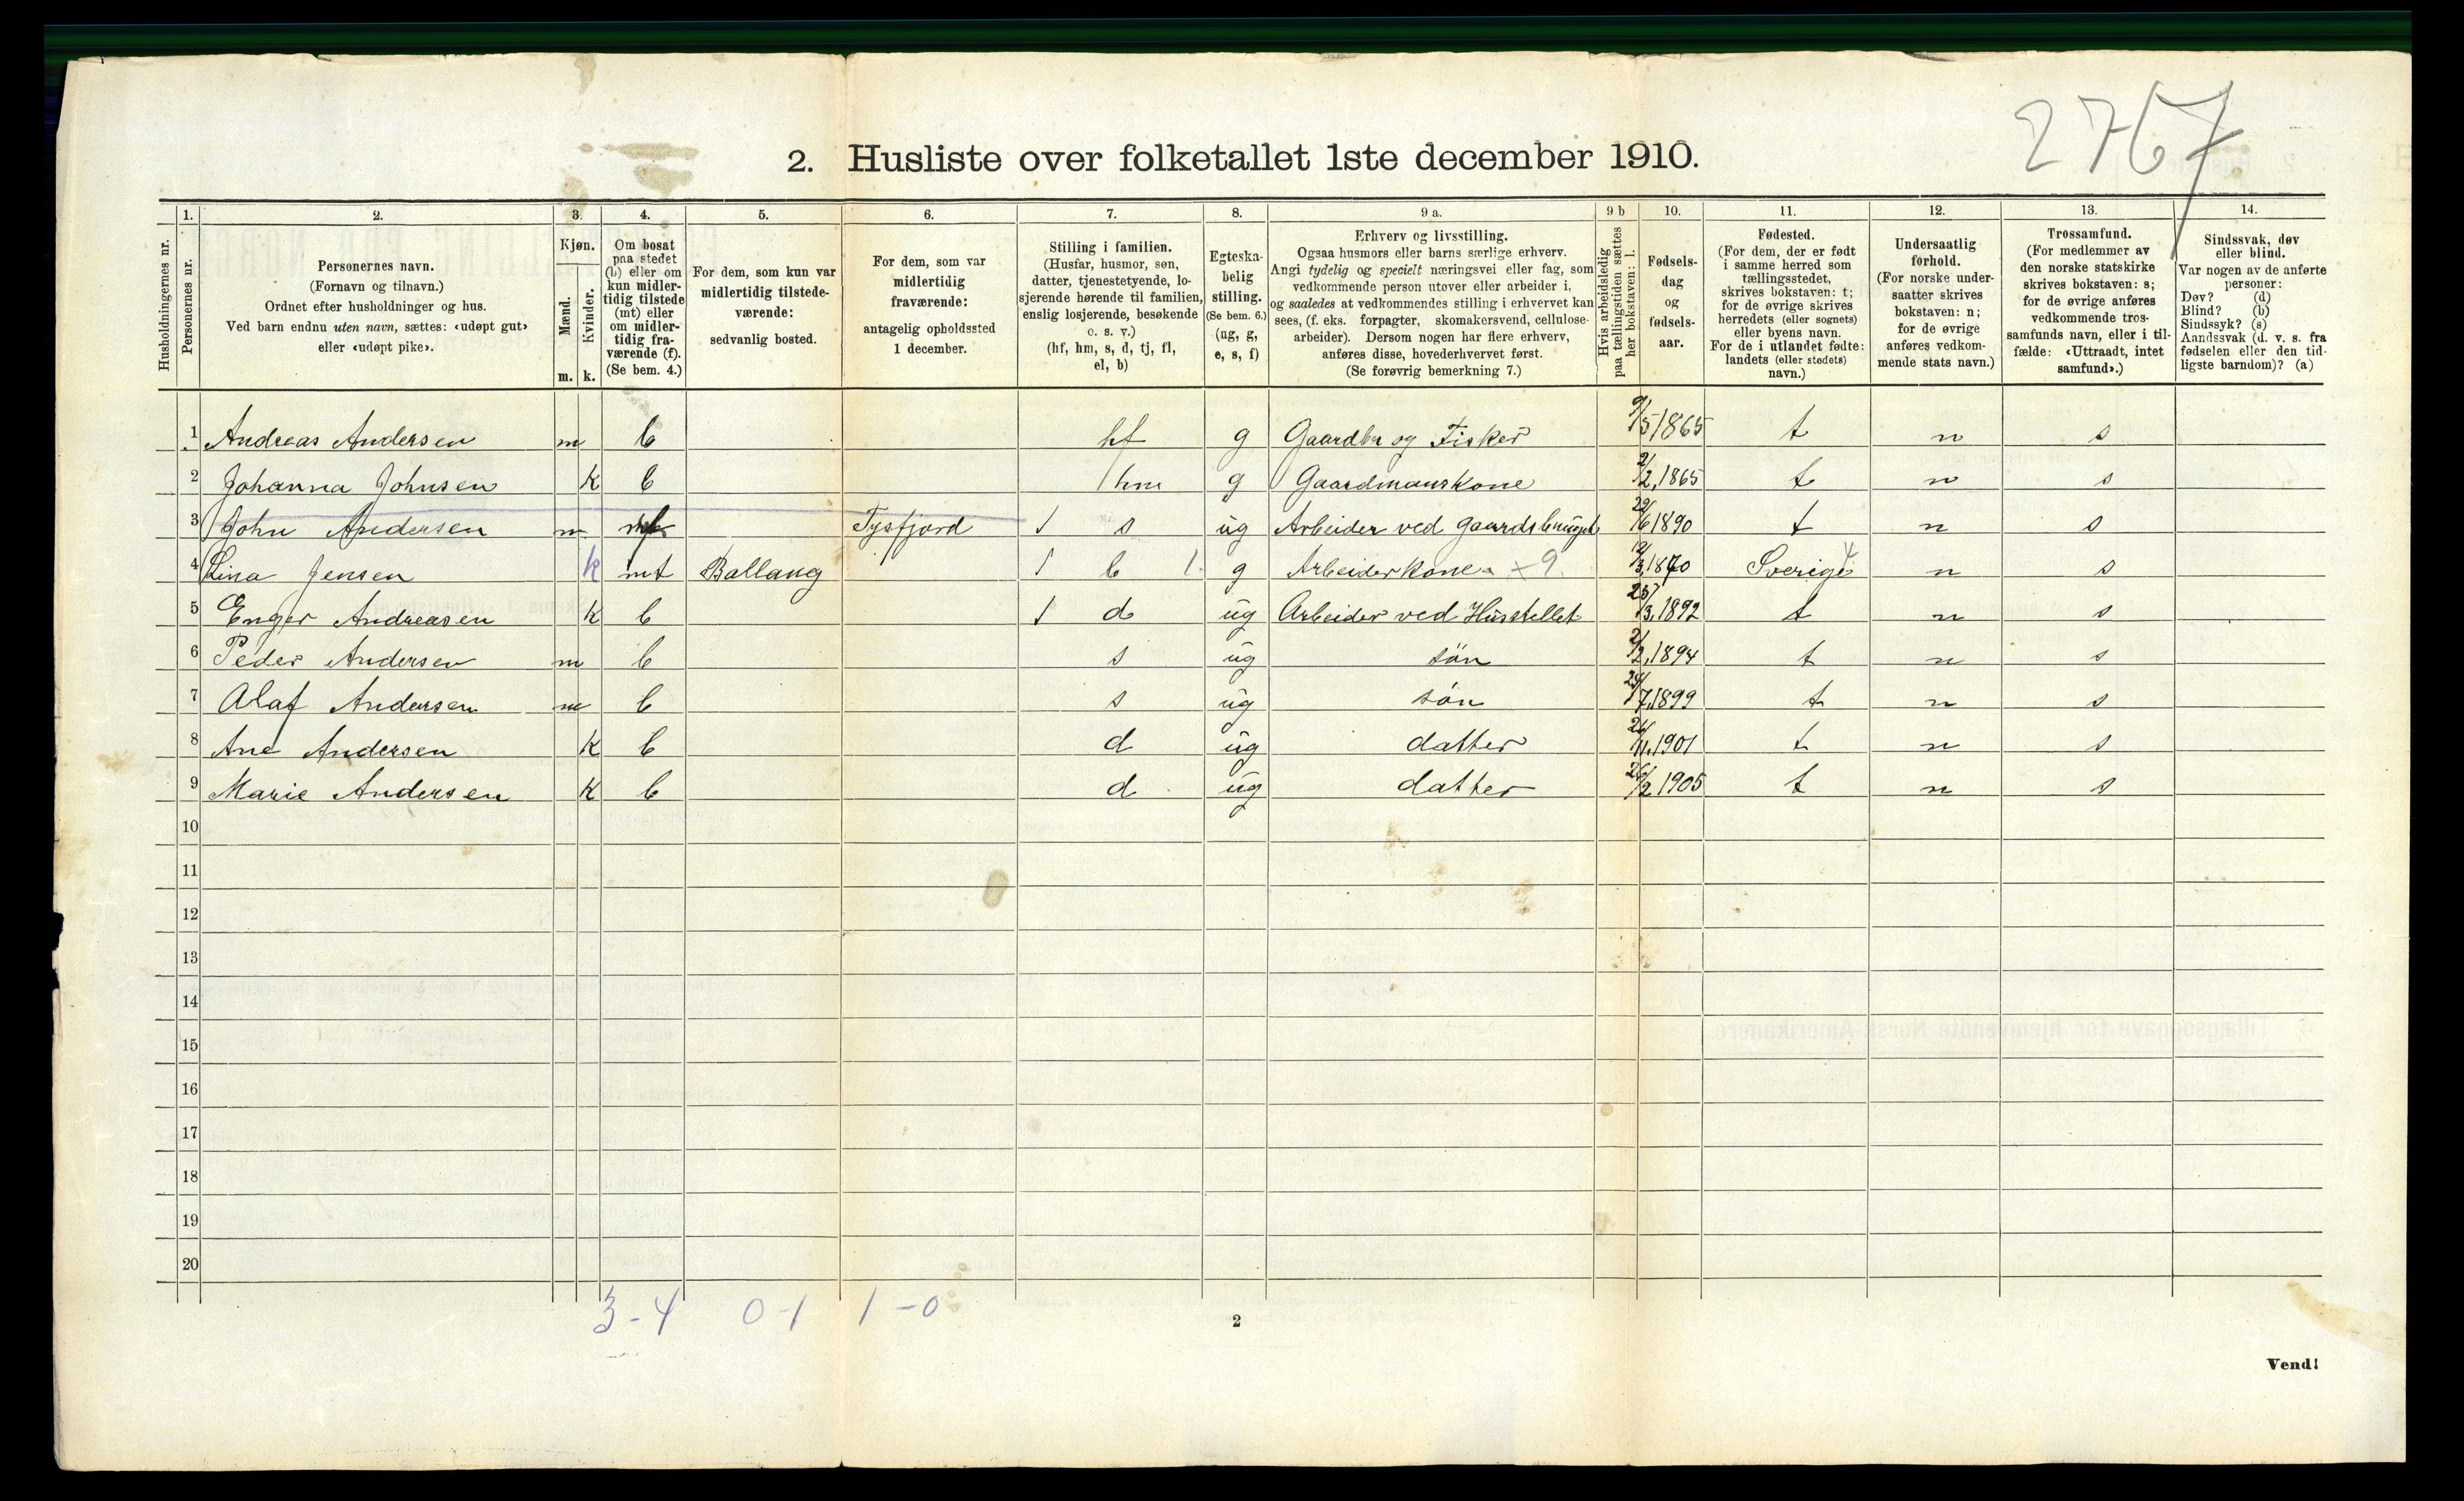 2767
2. Husliste over folketallet 1ste december 1910.
1. 2. 3. 4. 5. 6. 7. 8. 9 a. 9 b 10. 11. 12. 13. 14.
Husholdningernes nr.
Personernes nr.
Personernes navn.
(Fornavn og tilnavn.)
Ordnet efter husholdninger og hus.
Ved barn endnu uten navn, sættes: «udøpt gut»
eller «udøpt pike».
Kjøn.
Mænd.
Kvinder.
m. k.
Om bosat
paa stedet
(b) eller om
kun midler-
tidig tilstede
(mt) eller
om midler-
tidig fra-
værende (f).
(Se bem. 4.)
For dem, som kun var
midlertidig tilstede-
værende:
sedvanlig bosted.
For dem, som var
midlertidig
fraværende:
antagelig opholdssted
1 december.
Stilling i familien.
(Husfar, husmor, søn,
datter, tjenestetyende, lo-
sjerende hørende til familien,
enslig losjerende, besøkende
o. s. v.)
(hf, hm, s, d, tj, fl,
el, b)
Egteska-
belig
stilling.
(Se bem. 6.)
(ug, g,
e, s, f)
Erhverv og livsstilling.
Ogsaa husmors eller barns særlige erhverv.
Angi tydelig og specielt næringsvei eller fag, som
vedkommende person utøver eller arbeider i,
og saaledes at vedkommendes stilling i erhvervet kan
sees, (f. eks. forpagter, skomakersvend, cellulose-
arbeider). Dersom nogen har flere erhverv,
anføres disse, hovederhvervet først.
(Se forøvrig bemerkning 7.)
Hvis arbeidsledig
paa tællingstiden sættes
her bokstaven: l.
Fødsels-
dag
og
fødsels-
aar.
Fødested.
(For dem, der er født
i samme herred som
tællingsstedet,
skrives bokstaven: t;
for de øvrige skrives
herredets (eller sognets)
eller byens navn.
For de i utlandet fødte:
landets (eller stedets)
navn.)
Undersaatlig
forhold.
(For norske under-
saatter skrives
bokstaven: n;
for de øvrige
anføres vedkom-
mende stats navn.)
Trossamfund.
(For medlemmer av
den norske statskirke
skrives bokstaven: s;
for de øvrige anføres
vedkommende tros-
samfunds navn, eller i til-
fælde: «Uttraadt, intet
samfund».)
Sindssvak, døv
eller blind.
Var nogen av de anførte
personer:
Døv? (d)
Blind? (b)
Sindssyk? (s)
Aandssvak (d. v. s. fra
fødselen eller den tid-
ligste barndom)? (a)
1 Andreas Andersen m b hf g Gaardbr og Fisker 9/5 1865 t n s
2 Johanna Johnsen k b hm g Gaardmanskone 2/2 1865 t n s
3 John Andersen m Tysfjord 1 s ug Arbeider ved gaardsbruget 1890 t n s
4 Lina Jensen k mt Ballang 1 b 1. g Arbeiderkone x 9. Sverige n s
5 Enger Andreasen k b 1 d ug Arbeider ved Husstellet 25/3 1892 t n s
6 Peder Andersen m b s ug søn 2/2 1894 t n s
7 Olaf Andersen m b s ug søn 1899 t n s
8 Ane Andersen k b d ug datter 1901 t n s
9 Marie Andersen k b d ug datter 26/2 1905 t n s
10
11
12
13
14
15
16
17
18
19
20
3-4 0-1 1-0
2
Vend!